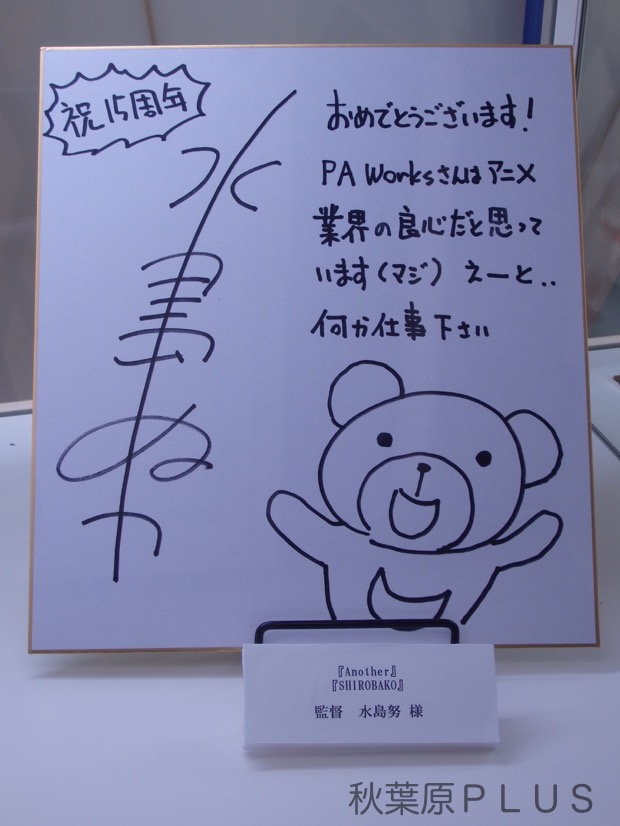 祝15周年
水島努
おめでとうございます!
PA Worksさんはアニメ
業界の良心だと思って
います(マジ) えーと..
何か仕事下さい
『Another』
『SHIROBAKO』
監督 水島努 様
秋葉原PLUS